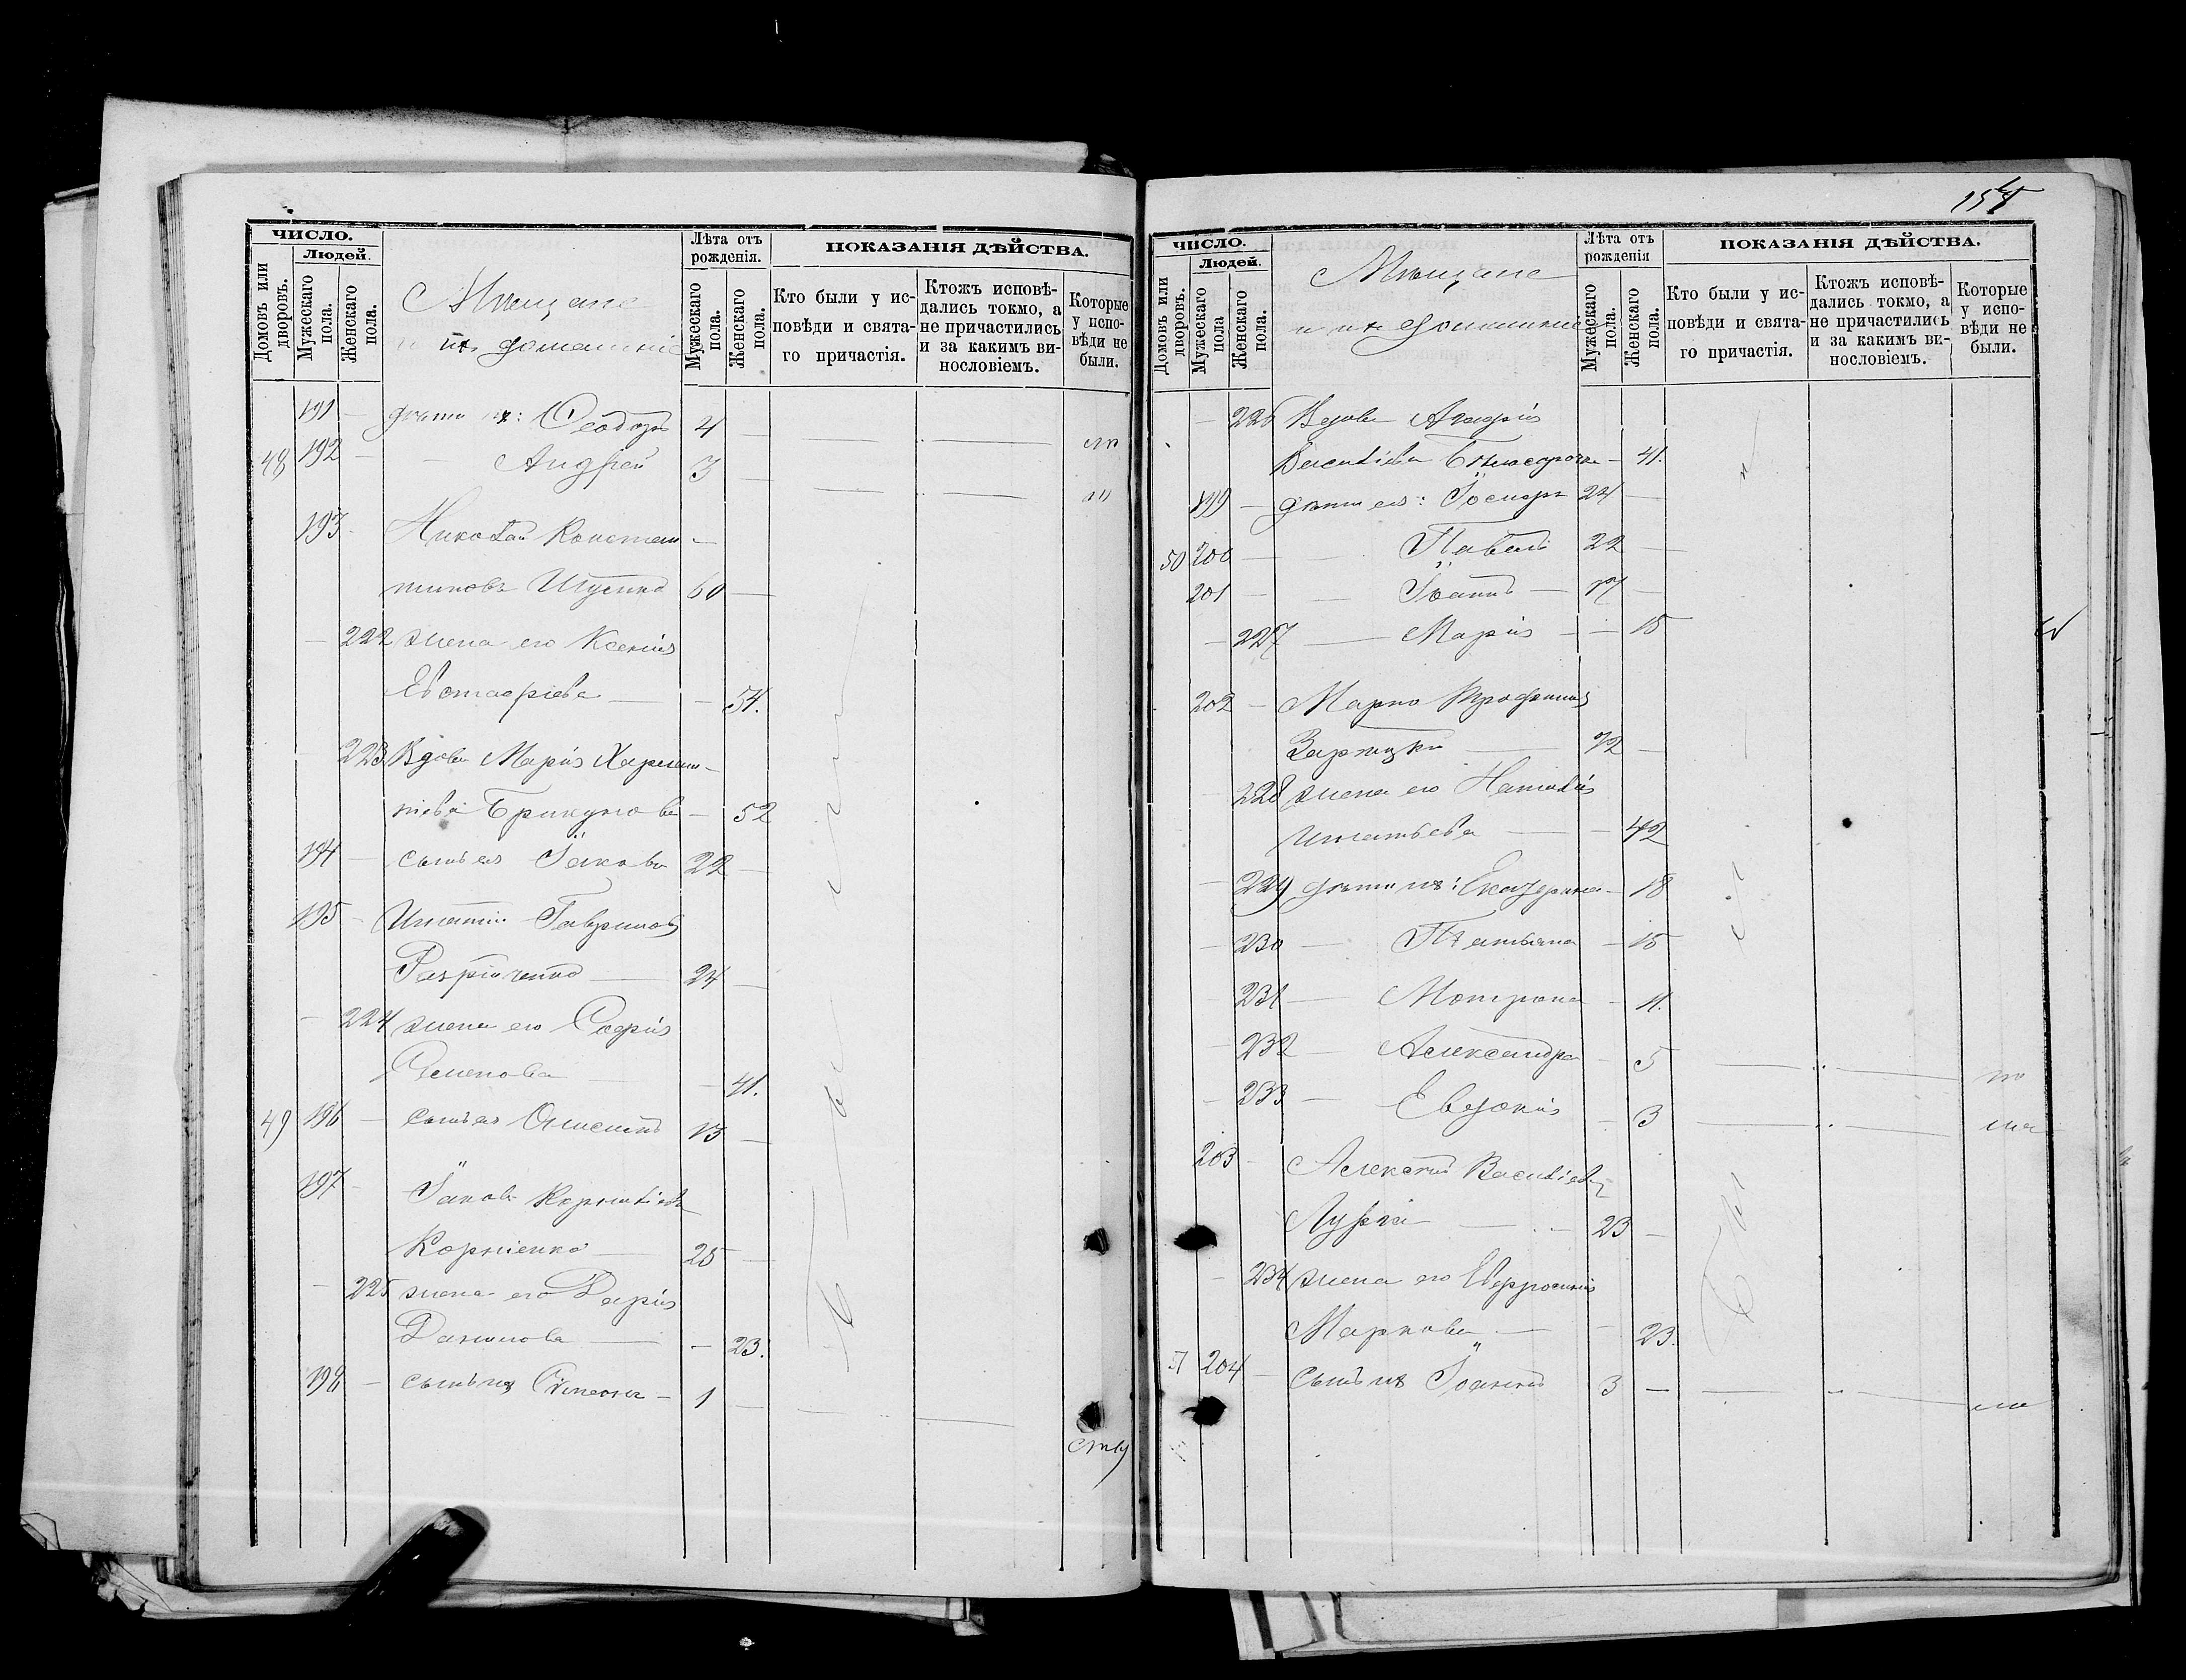 ЧИСЛО.
Людей.
Домовъ или дворовъ.
Мужескаго пола.
Женскаго пола.
Мѣщане
и ихъ домашніе
Лѣта отъ рожденія.
Мужескаго пола.
Женскаго пола.
ПОКАЗАНІЯ ДѢЙСТВА.
Кто были у ис-
повѣди и свята-
го причастія.
Ктожъ исповѣ-
дались токмо, а
не причастились
и за какимъ ви-
нословіемъ.
Которые
у испо-
вѣди не
были.
191 — дѣти их: Ѳеодоръ 4 —
48 192 — Андрей 3 —
193 — Николай Констан-
тиновъ 60 —
— 222 жена его Ксенія
Евстафіева — — 54.
— 223 Вдова Марія Харлам-
піева Брикунова — 52
194 — сынъ ея Іаковъ 22 —
195 — Игнатій Гавриловъ
24 —
— 224 жена его Софія
Семенова — — 41.
49 196 — сынъ ея 13 —
197 — Іаковъ Корниліевъ
Корніенко — 25 —
— 225 жена его Дарія
Данилова — — 23.
198 — сынъ их Симеонъ — 1 —
154
ЧИСЛО.
Людей.
Домовъ или дворовъ.
Мужескаго пола
Женскаго пола.
Мѣщане
и ихъ домашніе
Лѣта отъ рожденія
Мужескаго пола.
Женскаго пола.
ПОКАЗАНІЯ ДѢЙСТВА.
Кто были у ис-
повѣди и свята-
го причастія.
Ктожъ исповѣ-
дались токмо, а
не причастились
и за какимъ ви-
нословіемъ.
Которые
у испо-
вѣди не
были.
— 226 Вдова Агафія
Василіева — 41.
199 — дѣти ея: Іосифъ 24 —
50 200 — Павелъ 22 —
201 — Іоаннъ — 17 —
— 227 — Марія — — 15
202 — Марко Трофимовъ
Зарицкій — 72 —
228 жена его Наталія
Игнатьева — — 42
— 229 дѣти их: Екатерина — 18
— 230 — Татьяна — 15
231 — Мотрона — 11.
— 232 — Александра — 5
— 233 — Евдокія — 3
203 — Алексѣй Василіевъ
23 —
— 234 жена его Евфросинія
Маркова — — 23.
51 204 — Сынъ их Іоаннъ 3 —